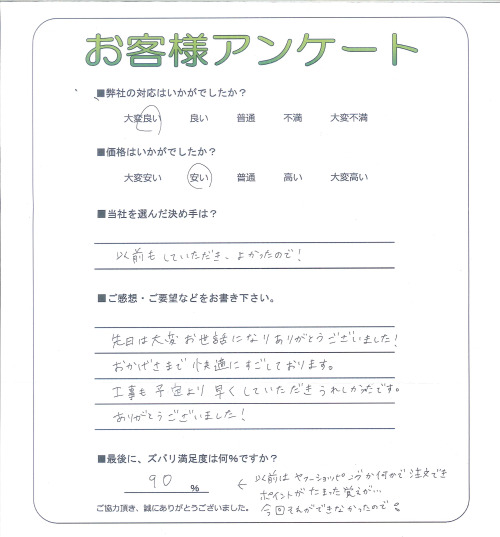 お客様アンケート
■弊社の対応はいかがでしたか?
大変良い 良い 普通 不満 大変不満
■価格はいかがでしたか?
大変安い 安い 普通 高い 大変高い
■当社を選んだ決め手は?
以前もしていただき、よかったので!
■ご感想・ご要望などをお書き下さい。
先日は大変お世話になりありがとうございました!
おかげさまで快適にすごしております。
工事も予定より早くしていただきうれしかったです。
ありがとうございました!
■最後に、ズバリ満足度は何%ですか?
90 %
← 以前はヤフーショッピングか何かで注文でき
ポイントがたまった覚えが…
今回それができなかったので。
ご協力頂き、誠にありがとうございました。